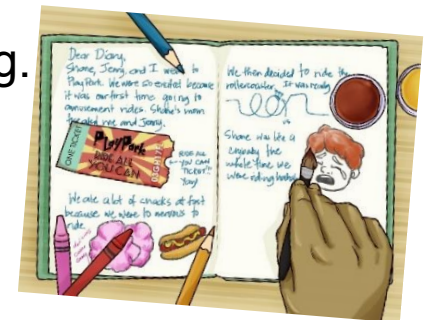 g.
Dear Diary,
Shane, Jenny, and I went to
PlayPark. We were so excited because
it was our first time going to
amusement rides. Shane's mom
treated me and Jenny.
ONE TICKET
PlayPark
RIDE ALL
YOU CAN
RIDE ALL
YOU CAN
TICKET!!
Yay!
We ate a lot of snacks at first
because we were to nervous to
ride.
We then decided to ride the
rollercoaster. It was really
Shane was like a
crybaby the
whole time we
were riding